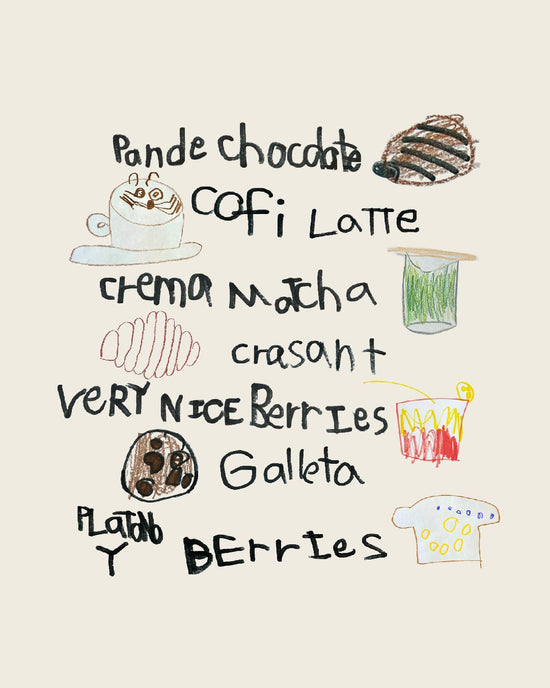 Pande chocolate
cofi Latte
crema Matcha
crasant
VERY NICE Berries
Galleta
PLatano
Y BErrIes